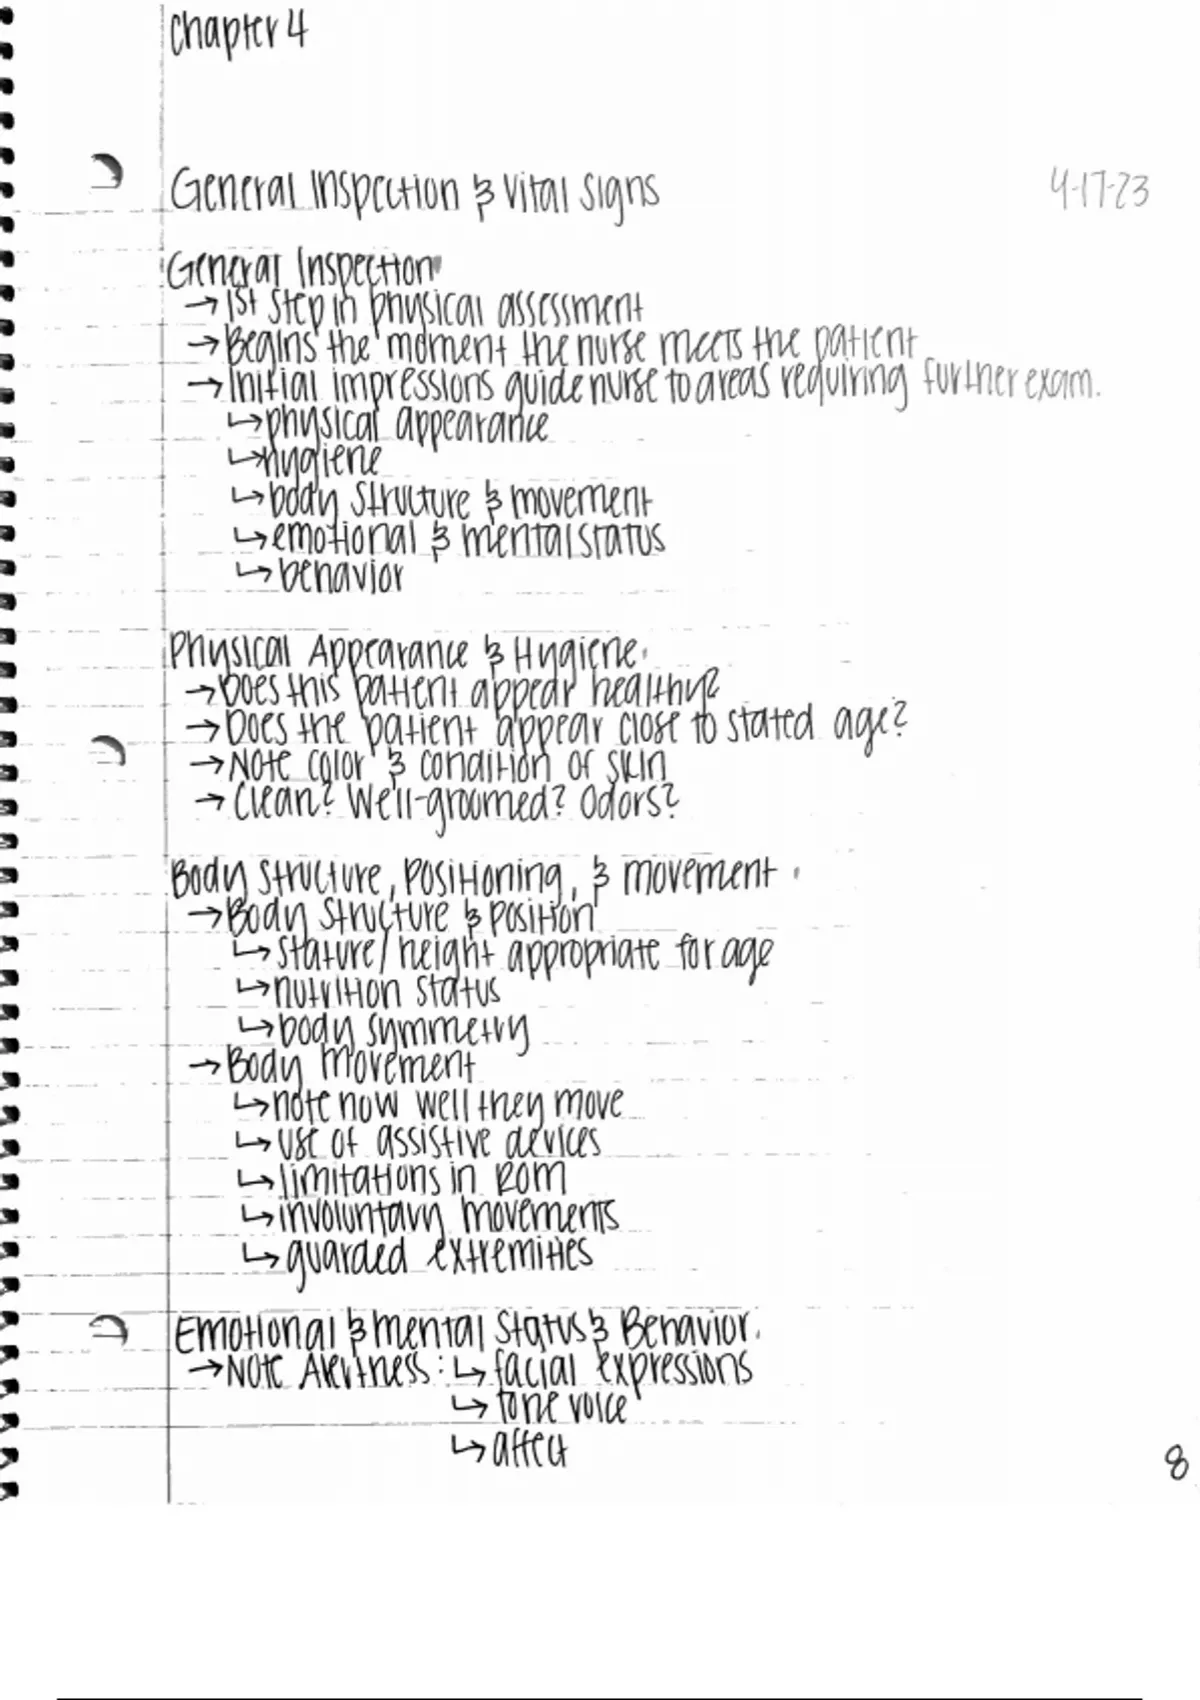 Chapter 4
General Inspection & Vital Signs 4-17-23
General Inspection
→ 1st step in physical assessment
→ Begins the moment the nurse meets the patient
→ Initial impressions guide nurse to areas requiring further exam.
↳ physical appearance
↳ hygiene
↳ body structure & movement
↳ emotional & mental status
↳ behavior
Physical Appearance & Hygiene
→ Does this patient appear healthy?
→ Does the patient appear close to stated age?
→ Note color & condition of skin
→ Clean? Well-groomed? Odors?
Body Structure, Positioning, & movement
→ Body Structure & position
↳ stature/height appropriate for age
↳ nutrition status
↳ body symmetry
→ Body movement
↳ note how well they move
↳ use of assistive devices
↳ limitations in ROM
↳ involuntary movements
↳ guarded extremities
Emotional & mental Status & Behavior
→ Note Alertness: ↳ facial expressions
↳ tone voice
↳ affect
8